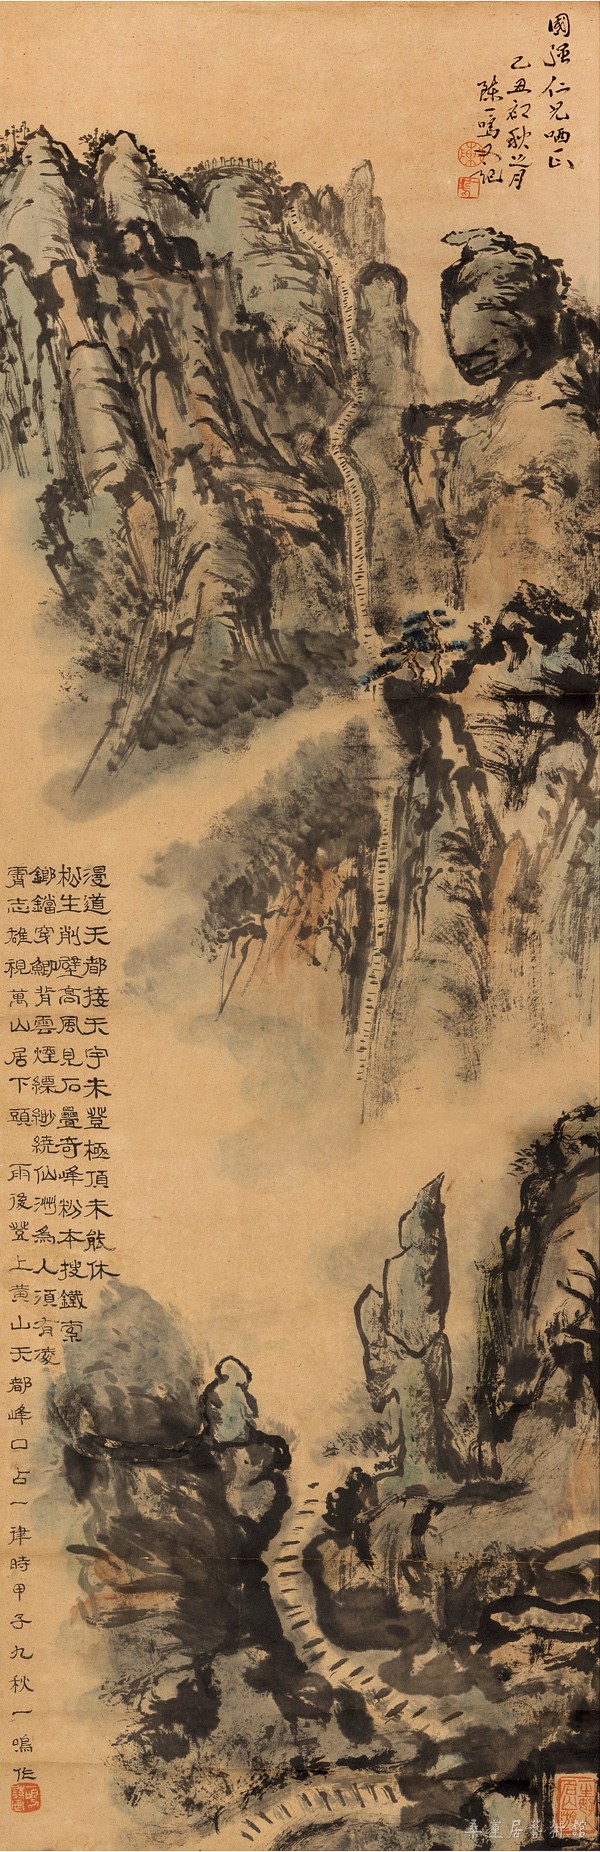 國強仁兄哂正
乙丑初秋之月
陳一鳴又記
漫道天都接天宇未登極頂未能休
松生削壁高風見石疊奇峰粉本搜鐵索
鎯鐺穿鯽背雲煙縹緲繞仙洲為人須有凌
霄志雄視萬山居下頭 雨後登上黃山天都峰口占一律時甲子九秋一鳴作
桑蓮居藝術館